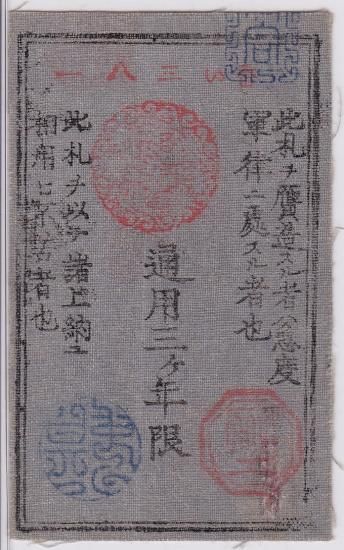 三八一
此札ヲ贋造スル者ハ急度
軍律ニ處スル者也
通用三ヶ年限
此札ヲ以テ諸上納ニ
相用ヒ不苦者也